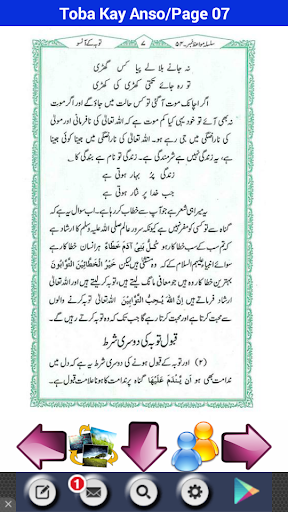 Toba Kay Anso/Page 07
سلسلہ مواعظ نمبر۔۵۳
۷
توبہ کے آنسو
نہ جانے بلا لے پیا کس گھڑی
تو رہ جائے تکتی کھڑی کی کھڑی
اگر اچانک موت آگئی تو کس حالت میں جاؤ گے اور اگر موت
نہ بھی آئے تو خود یہی کیا کم موت ہے کہ اللہ تعالیٰ کی نافرمانی اور مولیٰ
کی ناراضگی میں جی رہے ہو۔ اللہ تعالیٰ کی ناراضگی میں جینا کوئی جینا
ہے، یہ زندگی نہیں ہے شرمندگی ہے۔ زندگی تو نام ہے بندگی کا
زندگی پُر بہار ہوتی ہے
جب خدا پر نثار ہوتی ہے
یہ میرا ہی شعر ہے جو آپ سے خطاب کر رہا ہے۔ اب سوال یہ ہے کہ
گناہ سے تو کسی کو مفر نہیں ہے کیونکہ سرورِ عالم صلی اللہ علیہ وسلم کا ارشاد ہے
کہ تم سب کے سب خطا کار ہو كُلُّ بَنِيْ آدَمَ خَطَّاءٌ ہر انسان خطا کار ہے
سوائے انبیاء علیہم السلام کے کہ وہ مستثنیٰ ہیں لیکن خَيْرُ الْخَطَّائِيْنَ التَّوَّابُوْنَ
بہترین خطا کار وہ ہیں جو معافی مانگ لیتے ہیں، توبہ کر لیتے ہیں اور اللہ تعالیٰ
ارشاد فرماتے ہیں اِنَّ اللهَ يُحِبُّ التَّوَّابِيْنَ اللہ تعالیٰ توبہ کرنے والوں
سے محبت کرتا ہے اور محبت کرتا رہے گا جب تک وہ توبہ کرتے رہیں گے۔
قبولِ توبہ کی دوسری شرط
(۲) اور توبہ کے قبول ہونے کی دوسری شرط یہ ہے کہ دل میں
ندامت بھی ہو اَنْ يَّنْدَمَ عَلَيْهَا گناہ پر ندامت کا ہونا علامت قبول ہے۔
1